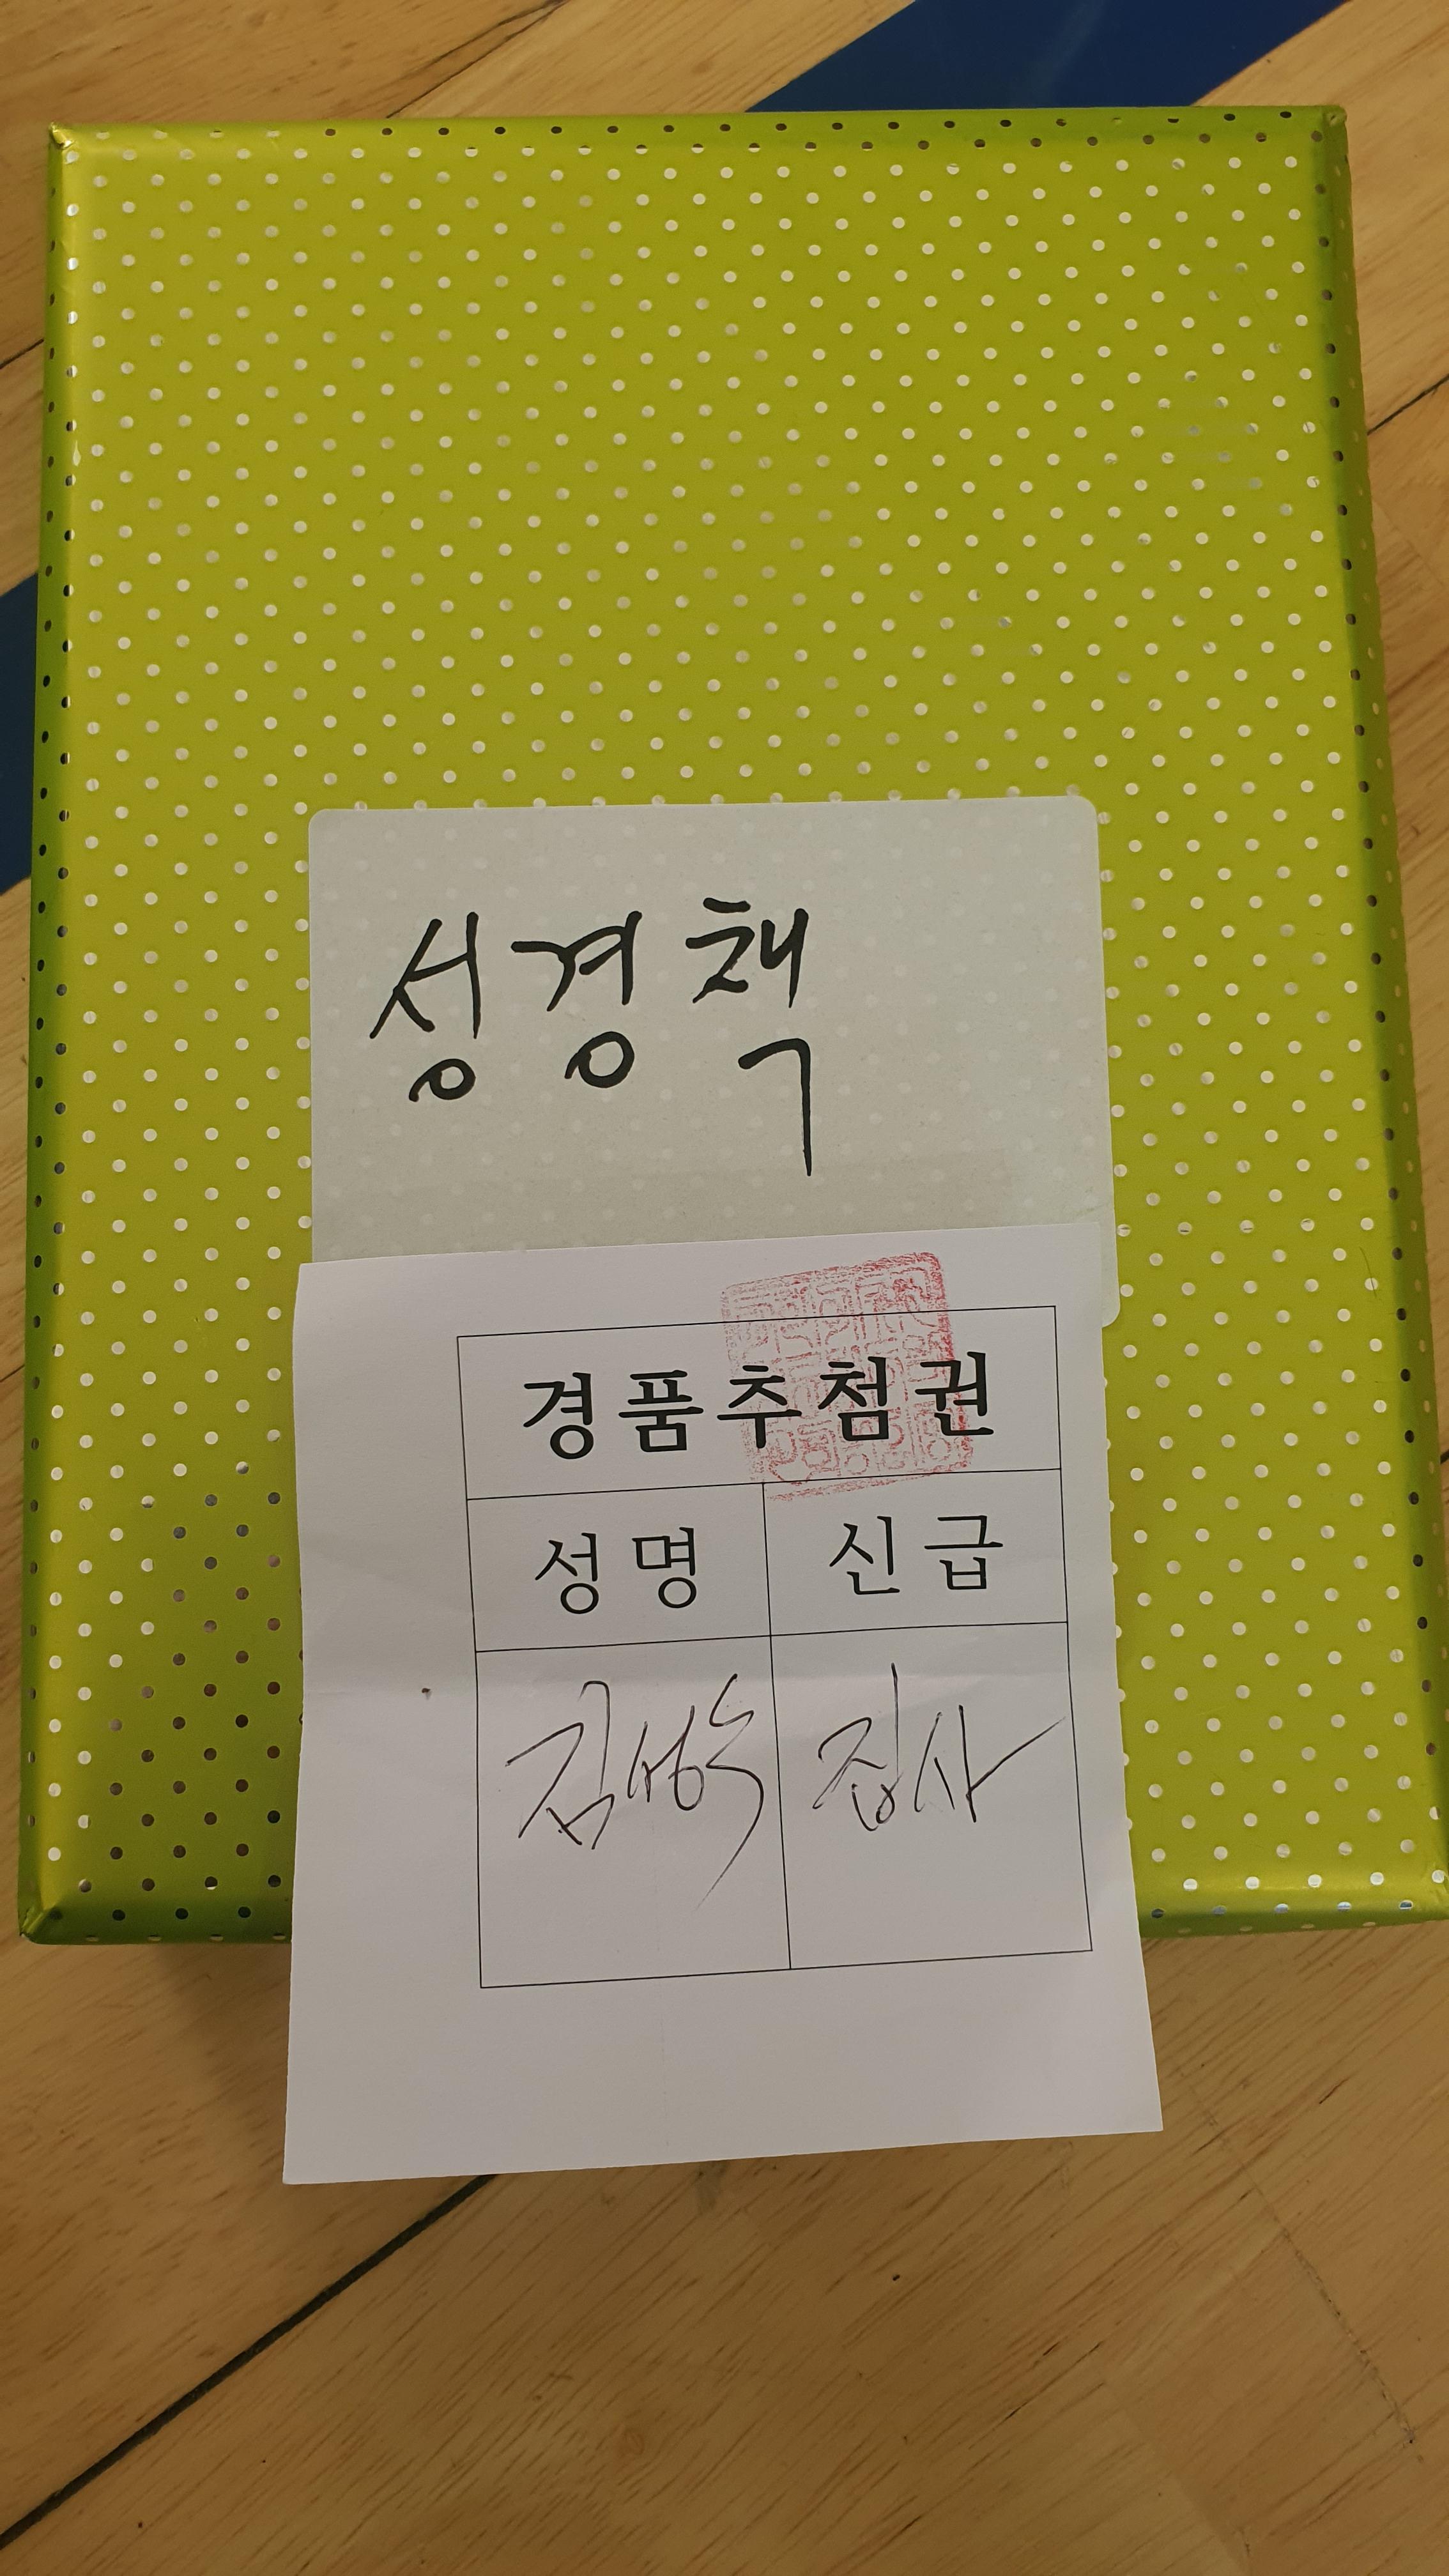 성경책
경품추첨권
성명 신급
집사